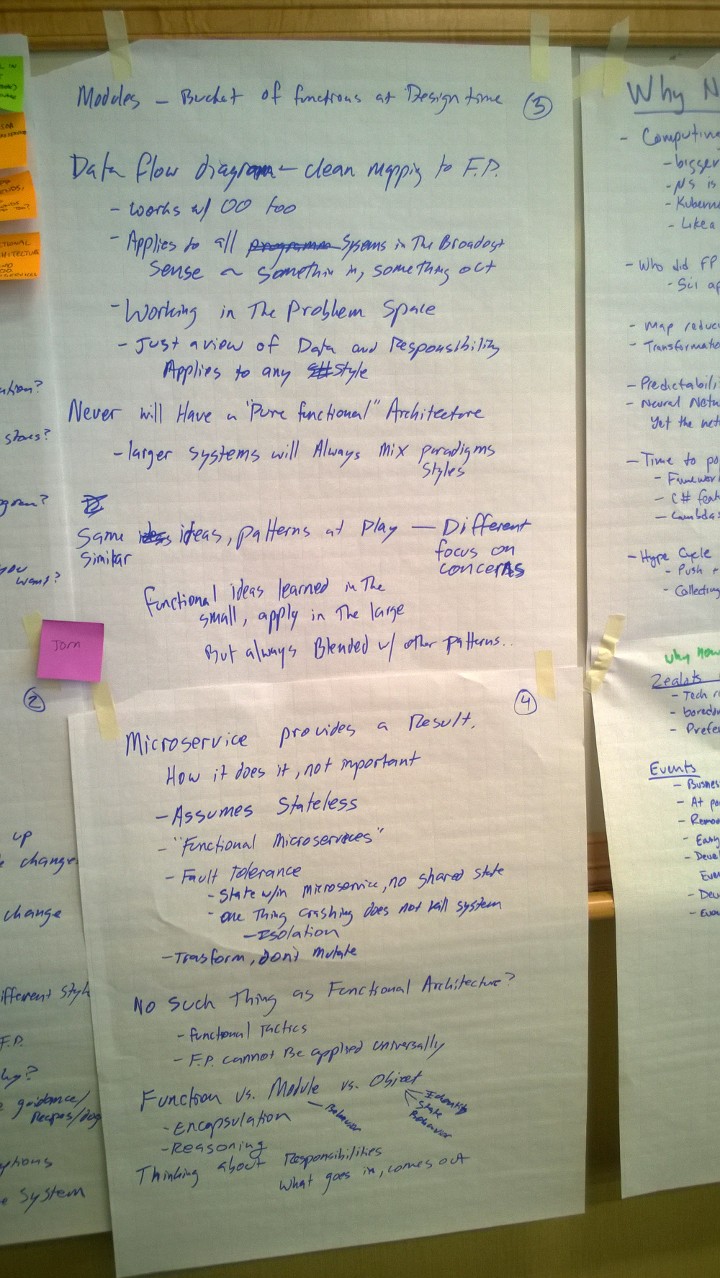 Modules – Bucket of functions at Design time
5
Data flow diagram – clean mapping to F.P.
- works w/ OO too
- Applies to all Sysems in The Broadest
Sense ~ somethin in, something out
- Working in The Problem Space
- Just a view of Data and Responsibility
Applies to any Style
Never will Have a "Pure functional" Architecture
- larger systems will Always mix paradigms
Styles
Same ideas, patterns at Play – Different
similar
focus on
concerns
functional ideas learned in The
small, apply in The large
But always Blended w/ other patterns..
4
Microservice provides a Result.
How it does it, not important
- Assumes Stateless
- "Functional Microservices"
- Fault Tolerance
- State w/in microservice, no shared state
- one Thing crashing does not kill system
- Isolation
- Trasform, don't mutate
No Such Thing as Functional Architecture?
- functional Tactics
- F.P. cannot Be applied universally
Function vs. Module vs. Object
- Behavior
Identity
State
Behavior
- Encapsulation
- Reasoning
Thinking about Responsibilities
what goes in, comes out
Jorn
2
stores?
want?
up
change.
change
F.P.
guidance/
System
Why N
- Computing
- bigger
- is
- Like a
- Who did FP
- Map reduce
- Predictabili
- Neural Netw
Yet the net
- Time to po
- C# feat
- Lambdas
- Hype Cycle
- Push
- Collecting
Why Now
Zealots
- Tech
- boredom
- Prefe
Events
- Busines
- At po
- Easy
- Deve
Even
- Dev